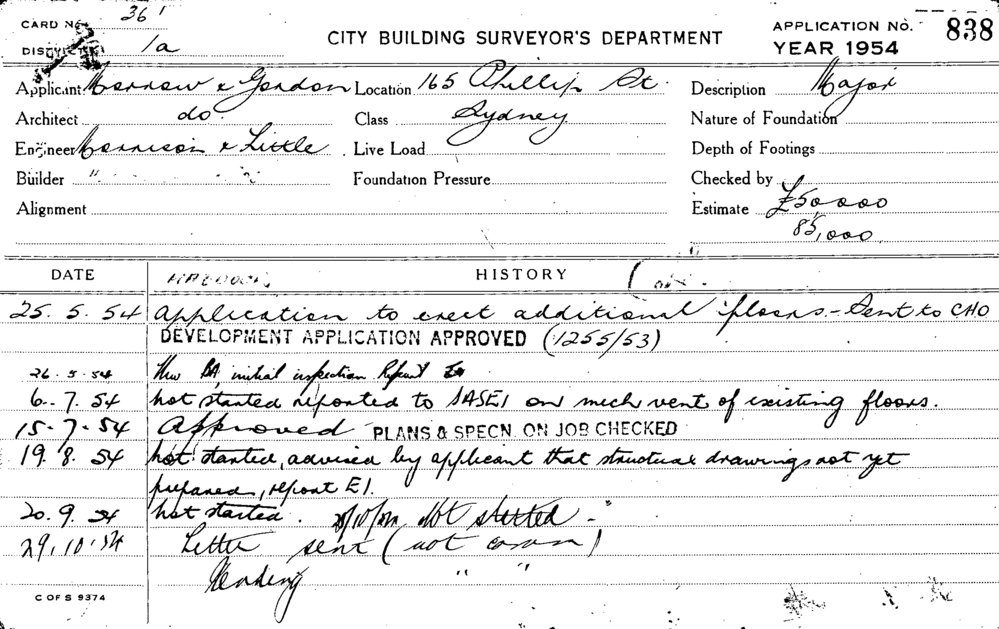 CARD No. 36
DISTRICT 1a
CITY BUILDING SURVEYOR'S DEPARTMENT
APPLICATION NO. 838
YEAR 1954
Applicant Morrow & Gordon Location 165 Phillip St. Description Major
Architect do. Class Sydney Nature of Foundation
Engineer Morrison & Little Live Load Depth of Footings
Builder " Foundation Pressure Checked by
Alignment Estimate £50000
85,000
DATE HISTORY
25.5.54 Application to erect additional floors.- Sent to CHO
DEVELOPMENT APPLICATION APPROVED (1255/53)
26.5.54 initial inspection Report
6.7.54 Not started reported to SASEI on mech vent of existing floors.
15.7.54 Approved PLANS & SPECN. ON JOB CHECKED
19.8.54 Not started, advised by applicant that structural drawings not yet
prepared, report EI.
20.9.54 Not started. Not started
29.10.54 Letter sent (not comm)
" "
C OF S 9374